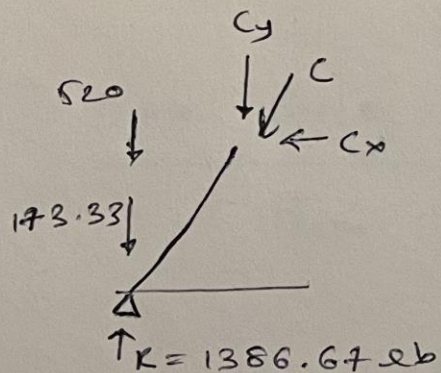 Cy
C
520
Cx
173.33
R = 1386.67 lb